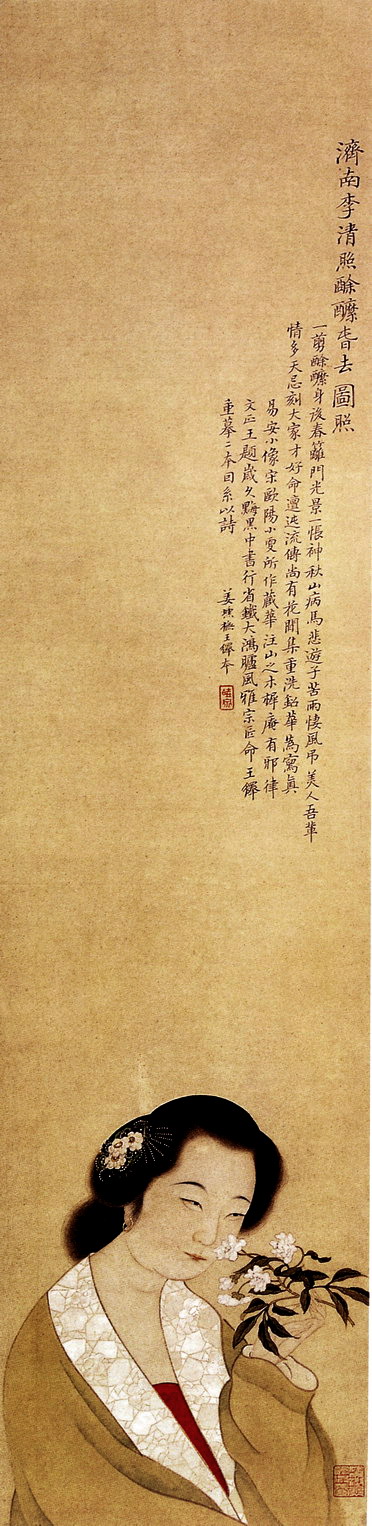 濟南李清照酴醾旾去圖照
一剪酴醾身後春籬門光景一悵神秋山病馬悲遊子苦雨悽風吊美人吾輩
情多天忌刻大家才好命邅迍流傳尚有花間集重洗鉛華為寫真
易安小像宋歐陽小叟所作藏華注山之木樨庵有耶律
文正王題歲久黑中書行省鐵大鴻臚風雅宗匠命王鐸
重摹二本因系以詩
姜王鐸本